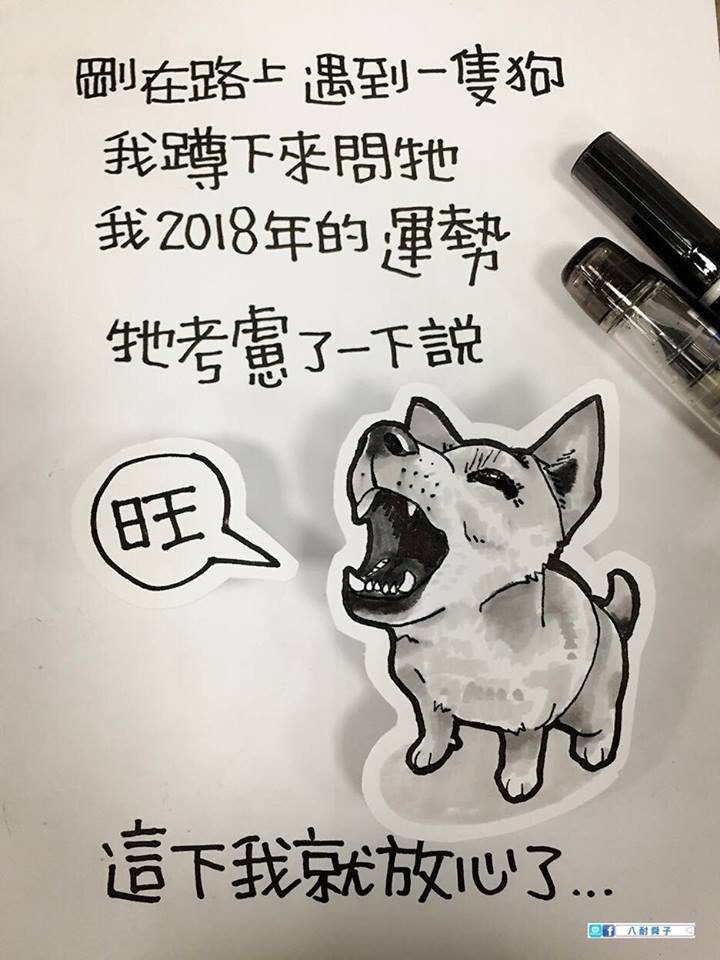 剛在路上遇到一隻狗
我蹲下來問牠
我2018年的運勢
牠考慮了一下說
旺
這下我就放心了...
八耐舜子